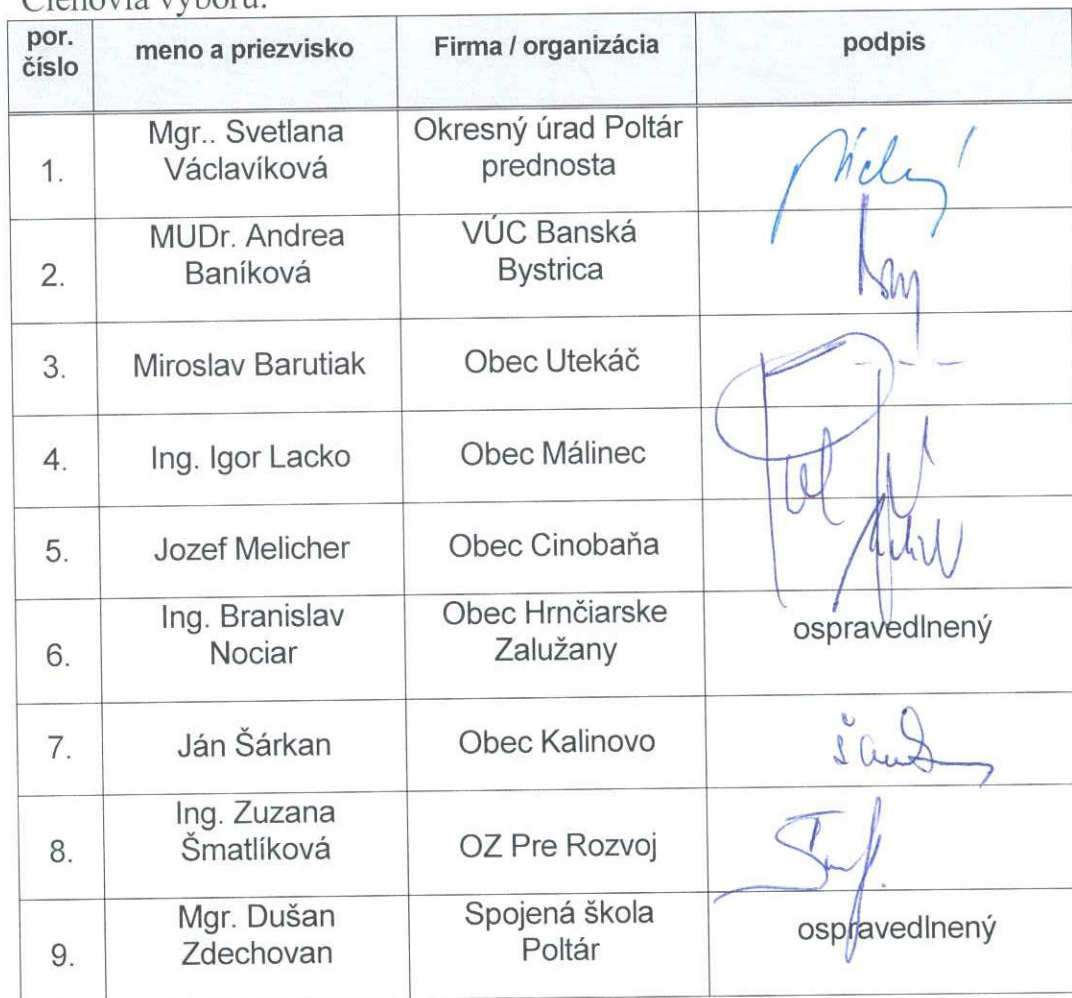 Členovia výboru:
por. číslo meno a priezvisko Firma / organizácia podpis
1. Mgr.. Svetlana Václavíková Okresný úrad Poltár prednosta
2. MUDr. Andrea Baníková VÚC Banská Bystrica
3. Miroslav Barutiak Obec Utekáč
4. Ing. Igor Lacko Obec Málinec
5. Jozef Melicher Obec Cinobaňa
6. Ing. Branislav Nociar Obec Hrnčiarske Zalužany ospravedlnený
7. Ján Šárkan Obec Kalinovo
8. Ing. Zuzana Šmatlíková OZ Pre Rozvoj
9. Mgr. Dušan Zdechovan Spojená škola Poltár ospravedlnený